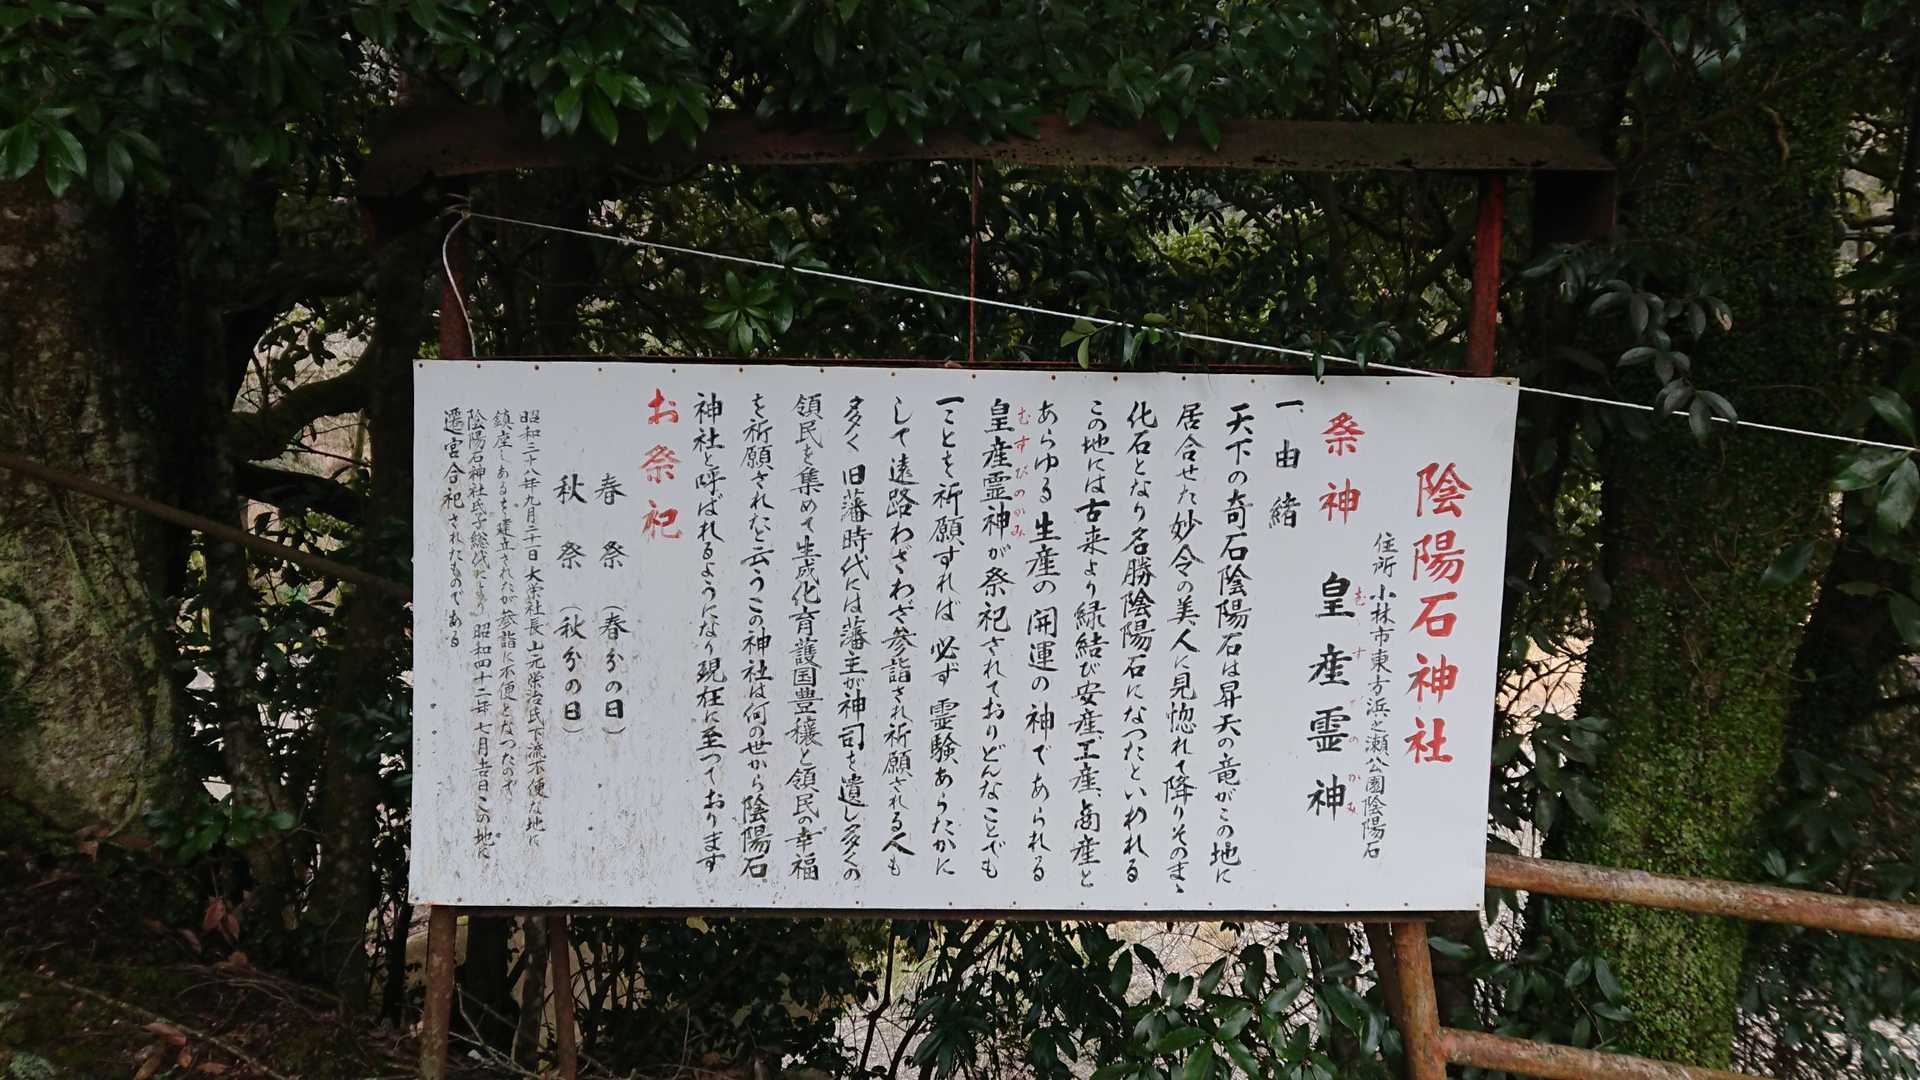 陰陽石神社
住所 小林市東方浜之瀬公園陰陽石
祭神 皇産霊神
むすびのかみ
一、由緒
天下の奇石陰陽石は昇天の竜がこの地に
居合せた妙令の美人に見惚れて降りそのまゝ
化石となり名勝陰陽石になつたといわれる
この地には古来より縁結び安産、工産、畜産と
あらゆる生産の開運の神であられる
むすびのかみ
皇産霊神が祭祀されておりどんなことでも
一ことを祈願すれば必ず霊験あらたかに
して遠路わざわざ参詣され祈願される人も
多く旧藩時代には藩主が神司を遺し多くの
領民を集めて生成化育護国豊穣と領民の幸福
を祈願されたと云うこの神社は何の世から陰陽石
神社と呼ばれるようになり現在に至つております
お祭祀
春祭（春分の日）
秋祭（秋分の日）
昭和二十八年九月二十一日大栄社長山元栄治氏下流不便な地に
鎮座しあるを建立されたが参詣に不便となつたので
陰陽石神社氏子総代により昭和四十二年七月吉日この地に
遷宮合祀されたものである